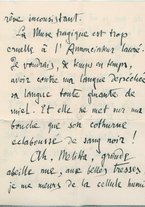 rêve inconsistant.
La Muse tragique est trop
cruelle à l'Annonciateur lauré.
Je voudrais, de temps en temps,
avoir contre ma langue desséchée
sa langue toute gluante de
miel. Et elle ne met sur ma
bouche que son cothurne
éclaboussé de sang noir !
Ah, Melitta, grande
abeille aux belles tresses,
je me meurs de la cellule